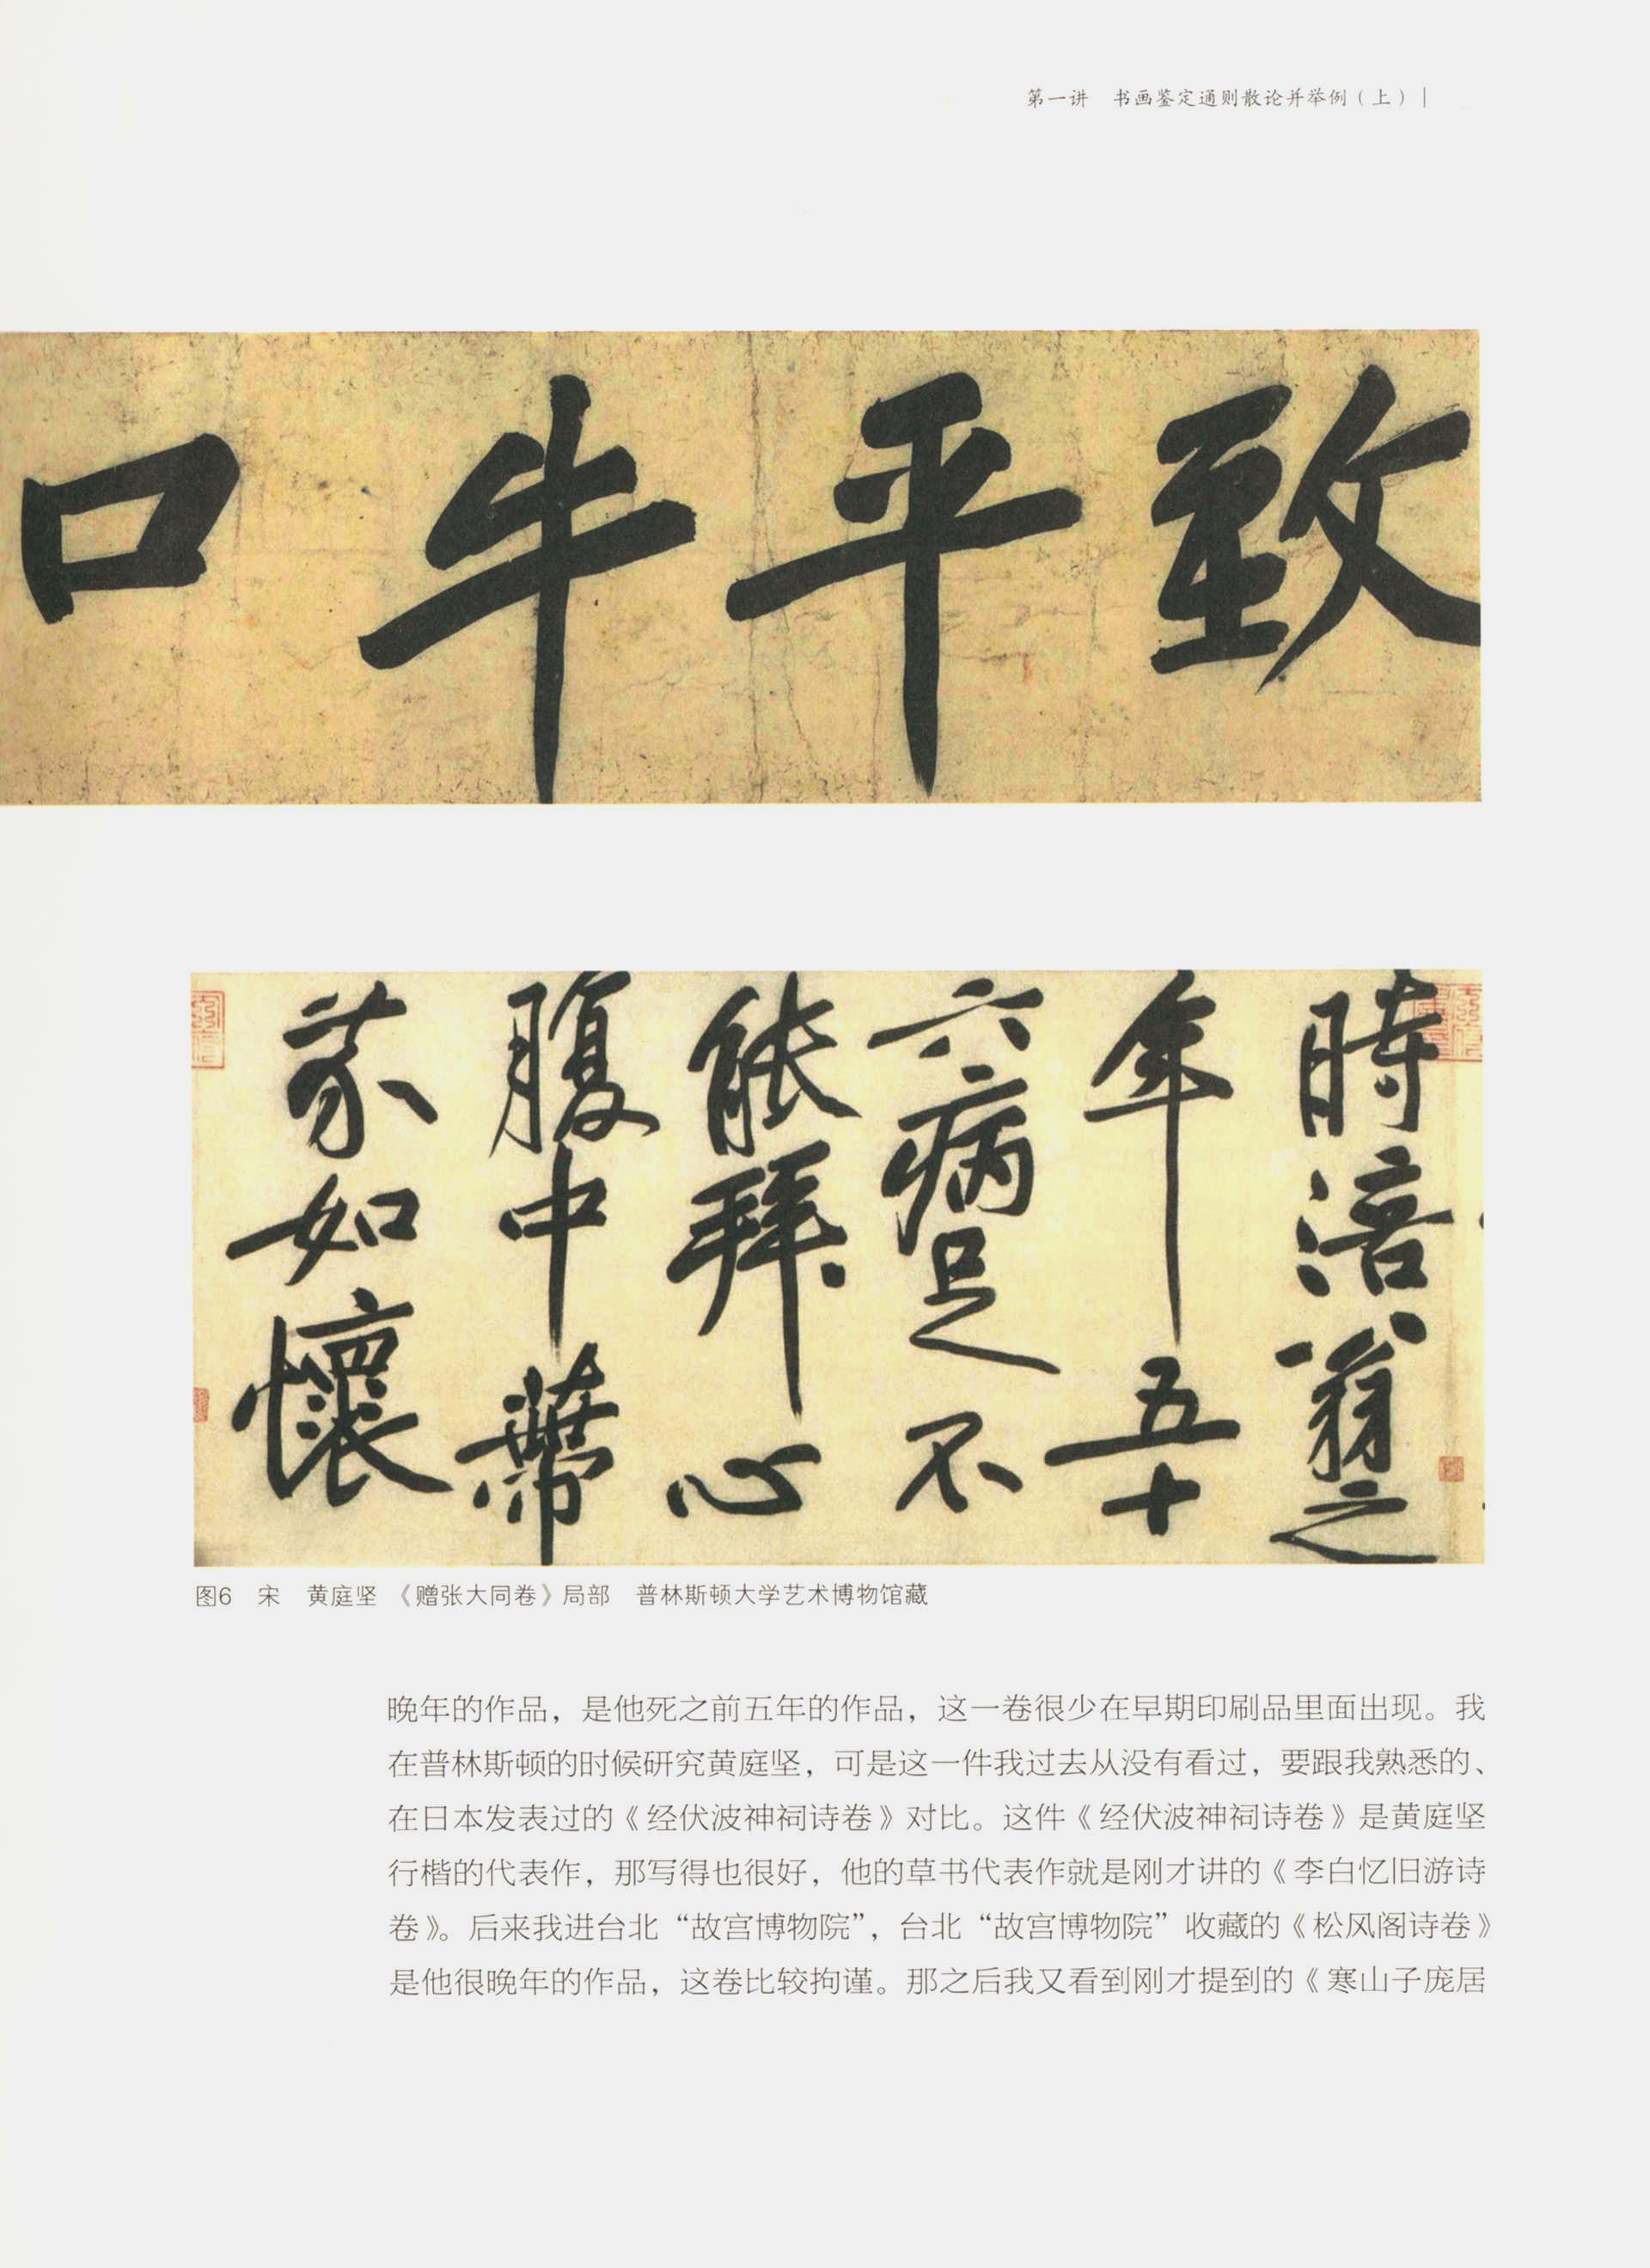 第一讲　书画鉴定通则散论并举例（上）
致平牛口
時涪翁之
年五十
六病足不
能拜心
腹中蔕
芥如懷
图6　宋　黄庭坚　《赠张大同卷》局部　普林斯顿大学艺术博物馆藏
晚年的作品，是他死之前五年的作品，这一卷很少在早期印刷品里面出现。我
在普林斯顿的时候研究黄庭坚，可是这一件我过去从没有看过，要跟我熟悉的、
在日本发表过的《经伏波神祠诗卷》对比。这件《经伏波神祠诗卷》是黄庭坚
行楷的代表作，那写得也很好，他的草书代表作就是刚才讲的《李白忆旧游诗
卷》。后来我进台北“故宫博物院”，台北“故宫博物院”收藏的《松风阁诗卷》
是他很晚年的作品，这卷比较拘谨。那之后我又看到刚才提到的《寒山子庞居